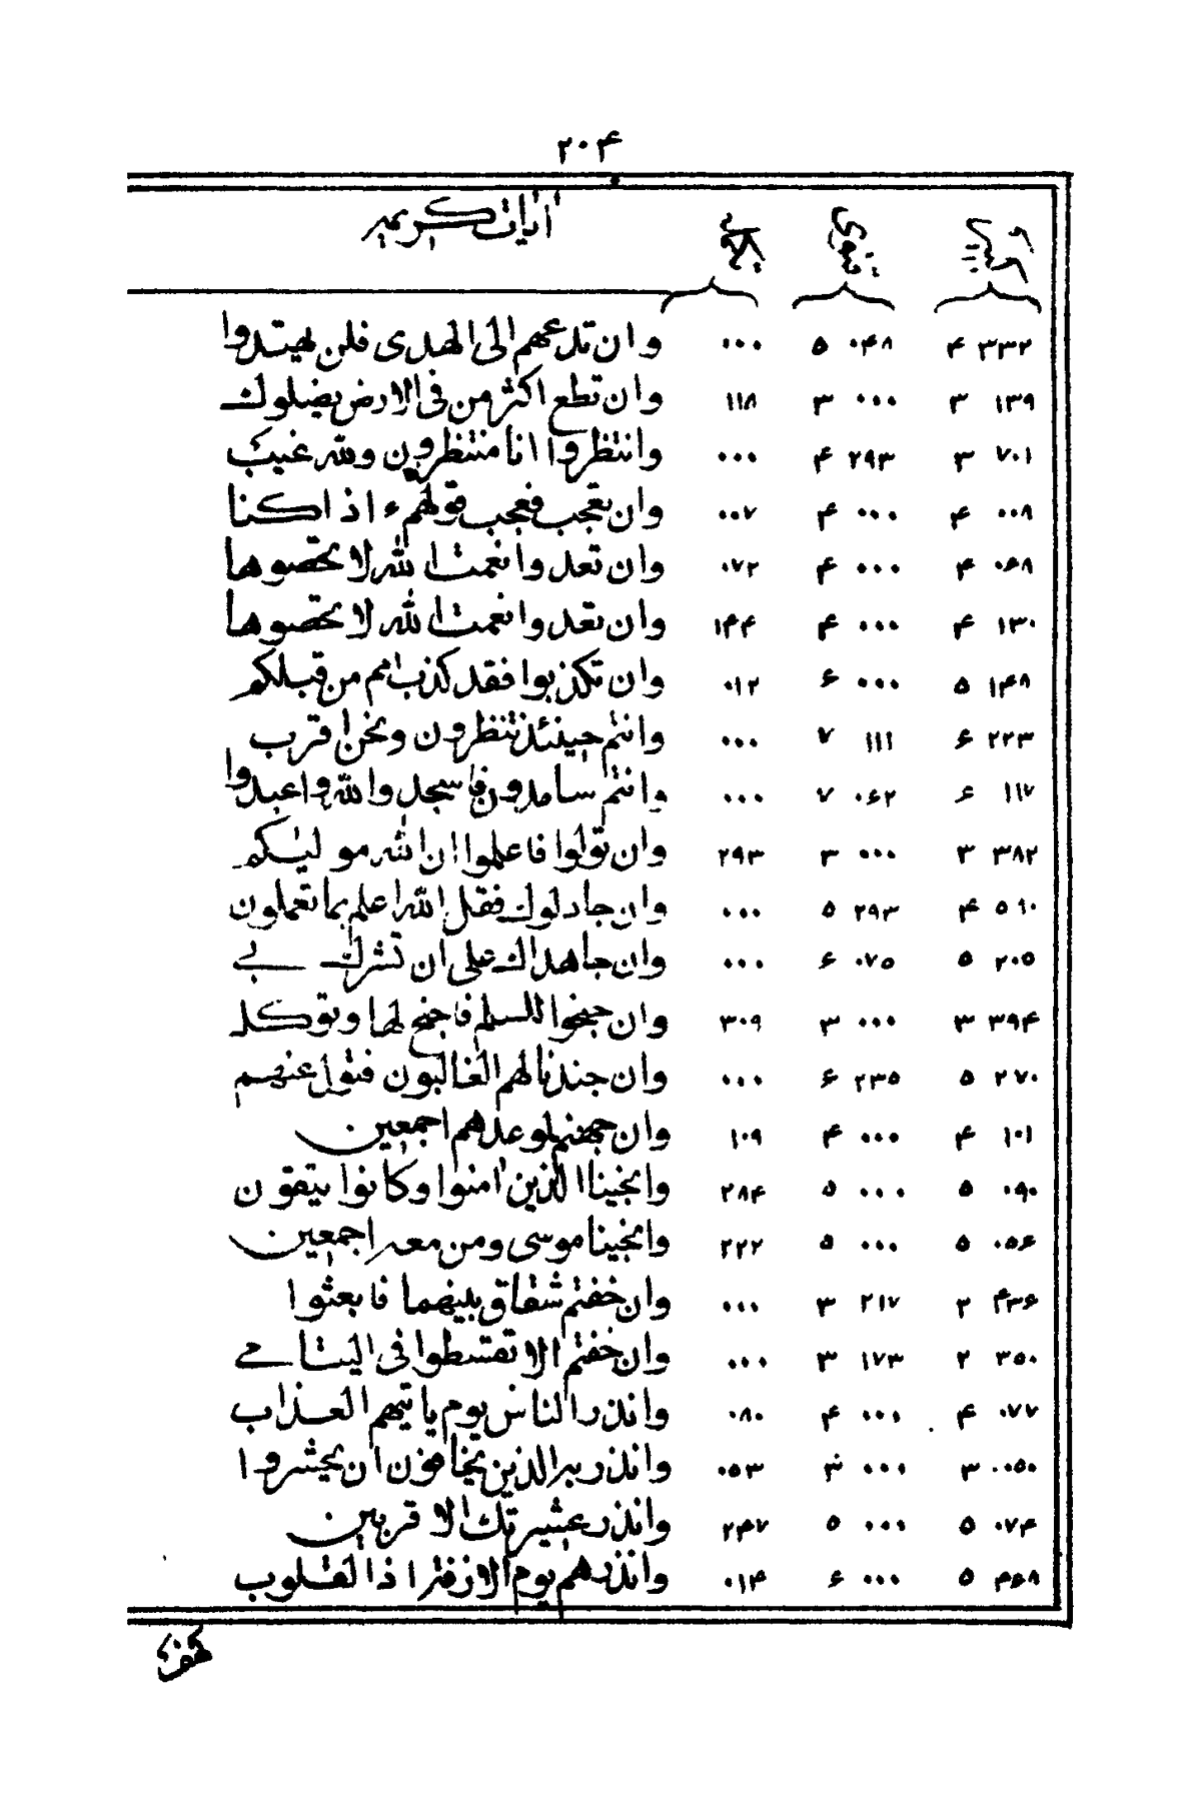 ٢٠۴
آيات كريمه
٣٣٢ ۴ ٠۴٨ ٥ ٠٠٠ وان تدعهم الى الهدى فلن يهتدوا
١٣٩ ٣ ٠٠٠ ٣ ١١٨ وان تطع اكثر من فى الارض يضلوك
٧٠١ ٣ ٢٩٣ ۴ ٠٠٠ وانتظروا انا منتظرون ولله غيب
٠٠٨ ۴ ٠٠٠ ۴ ٠٠٧ وان تعجب فعجب قولهم ءاذا كنا
٠۶٨ ۴ ٠٠٠ ۴ ٠٧٢ وان تعدوا نعمت الله لا تحصوها
١٣٠ ۴ ٠٠٠ ۴ ١۴۴ وان تعدوا نعمت الله لا تحصوها
١۴٨ ٥ ٠٠٠ ۶ ٠١٢ وان تكذبوا فقد كذب امم من قبلكم
٢٢٣ ۶ ١١١ ٧ ٠٠٠ وانتم حينئذ تنظرون ونحن اقرب
١١٧ ۶ ٠۶٢ ٧ ٠٠٠ وانتم سامدون فاسجدوا لله واعبدوا
٣٨٢ ٣ ٠٠٠ ٣ ٢٩٣ وان تولوا فاعلموا ان الله موليكم
٥١٠ ۴ ٢٩٣ ٥ ٠٠٠ وان جادلوك فقل الله اعلم بما تعملون
٢٠٥ ٥ ٠٧٥ ۶ ٠٠٠ وان جاهداك على ان تشرك بى
٣٩۴ ٣ ٠٠٠ ٣ ٣٠٩ وان جنحوا للسلم فاجنح لها وتوكل
٢٧٠ ٥ ٢٣٥ ۶ ٠٠٠ وان جندنا لهم الغالبون فتول عنهم
١٠١ ۴ ٠٠٠ ۴ ١٠٩ وان جهنم لموعدهم اجمعين
٠٩٠ ٥ ٠٠٠ ٥ ٢٨۴ وانجينا الذين امنوا وكانوا يتقون
٠٥۶ ٥ ٠٠٠ ٥ ٢٢٢ وانجينا موسى ومن معه اجمعين
۴٣۶ ٢ ٢١٧ ٣ ٠٠٠ وان خفتم شقاق بينهما فابعثوا
٣٥٠ ٢ ١٧٣ ٣ ٠٠٠ وان خفتم الا تقسطوا فى اليتامى
٠٧٧ ۴ ٠٠٠ ۴ ٠٨٠ وانذر الناس يوم ياتيهم العذاب
٠٥٠ ٣ ٠٠٠ ٣ ٠٥٣ وانذر به الذين يخافون ان يحشروا
٠٧۴ ٥ ٠٠٠ ٥ ٢۴٧ وانذر عشيرتك الاقربين
۴۶٨ ٥ ٠٠٠ ۶ ٠١۴ وانذرهم يوم الازفة اذ القلوب